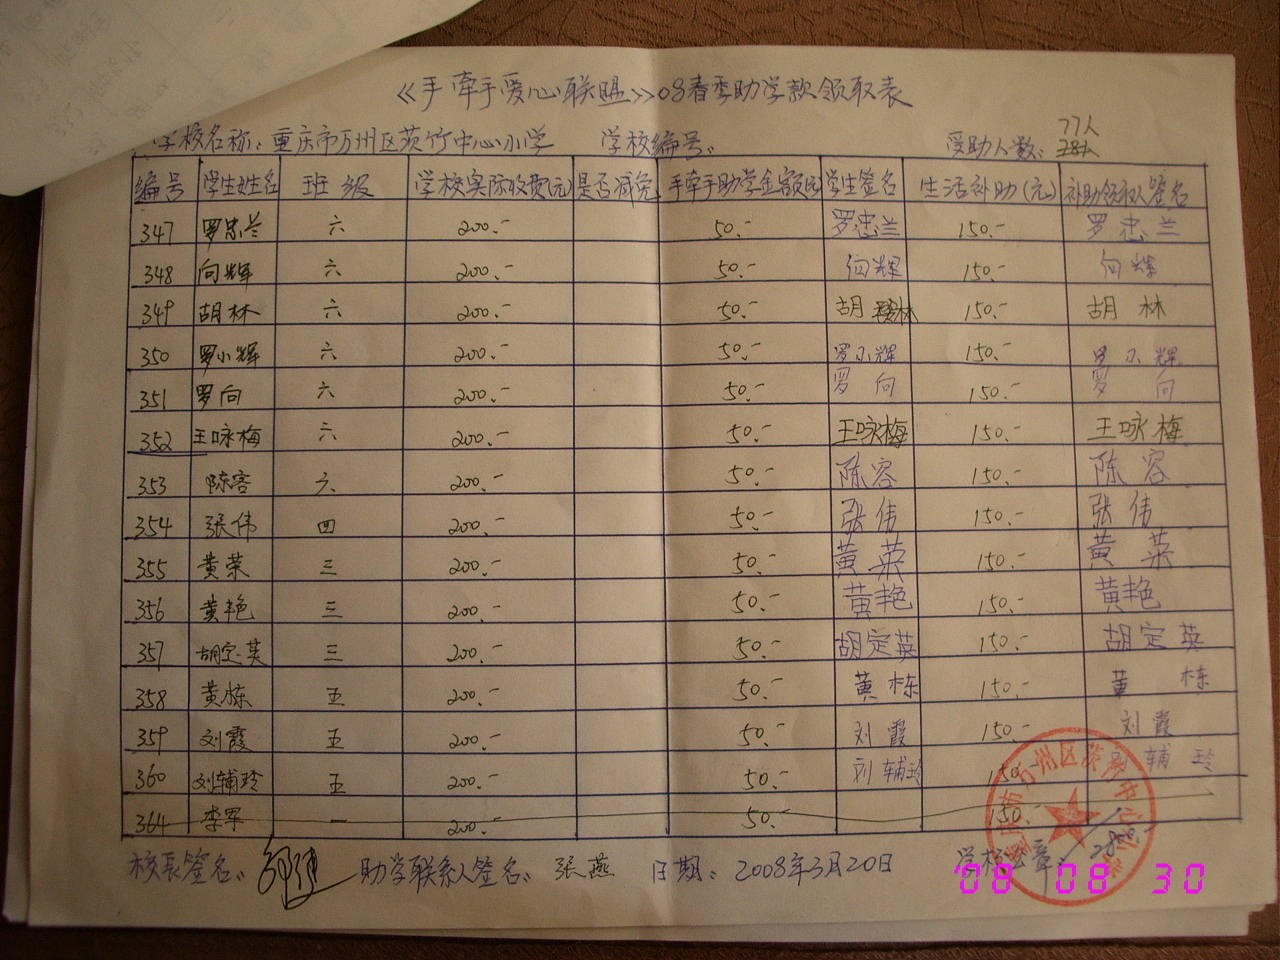 《手牵手爱心联盟》08春季助学款领取表
77人
学校名称:重庆市万州区茨竹中心小学 学校编号: 受助人数: 78人
编号 学生姓名 班级 学校实际收费(元) 是否减免 手牵手助学金额(元) 学生签名 生活补助(元) 补助领取人签名
347 罗忠兰 六 200.- 50.- 罗忠兰 150.- 罗忠兰
348 向辉 六 200.- 50.- 向辉 150.- 向辉
349 胡林 六 200.- 50.- 胡林 150.- 胡林
350 罗小辉 六 200.- 50.- 罗小辉 150.- 罗小辉
351 罗向 六 200.- 50.- 罗向 150.- 罗向
352 王咏梅 六 200.- 50.- 王咏梅 150.- 王咏梅
353 陈容 六 200.- 50.- 陈容 150.- 陈容
354 张伟 四 200.- 50.- 张伟 150.- 张伟
355 黄荣 三 200.- 50.- 黄荣 150.- 黄荣
356 黄艳 三 200.- 50.- 黄艳 150.- 黄艳
357 胡定英 三 200.- 50.- 胡定英 150.- 胡定英
358 黄栋 五 200.- 50.- 黄栋 150.- 黄栋
359 刘霞 五 200.- 50.- 刘霞 150.- 刘霞
360 刘辅玲 五 200.- 50.- 刘辅玲 150.- 刘辅玲
364 李军 一 200.- 50.- 150.-
校长签名: 助学联系人签名: 张燕 日期: 2008年3月20日 学校公章:
08 08 30